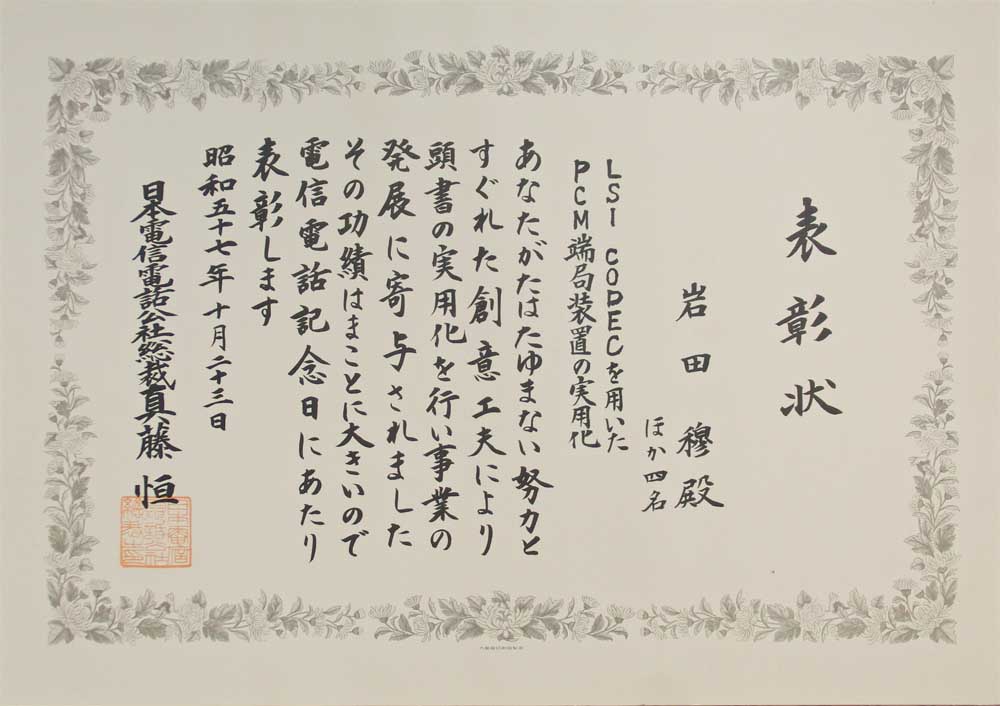 表彰状
岩田穆殿
ほか四名
LSI CODECを用いた
PCM端局装置の実用化
あなたがたはたゆまない努力と
すぐれた創意工夫により
頭書の実用化を行い事業の
発展に寄与されました
その功績はまことに大きいので
電信電話記念日にあたり
表彰します
昭和五十七年十月二十三日
日本電信電話公社総裁真藤恒